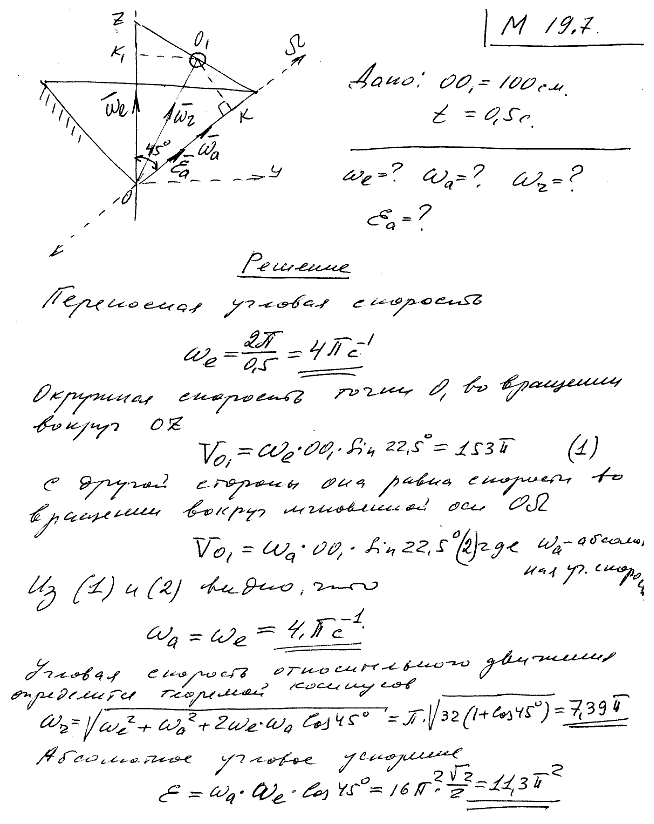 М 19.7.
Z
K₁
O₁
Ω
ω̄e
ω̄r
K
45°
ω̄a
ε̄a
O
y
Дано: OO₁ = 100 см.
t = 0,5 с.
ωe = ? ωa = ? ωr = ?
εa = ?
Решение
Переносная угловая скорость
ωe = 2π/0,5 = 4π с⁻¹
Окружная скорость точки O₁ во вращении
вокруг OZ
Vo₁ = ωe · OO₁ · Sin 22,5° = 153π (1)
с другой стороны она равна скорости во
вращении вокруг мгновенной оси OΩ
Vo₁ = ωa · OO₁ · Sin 22,5° (2) где ωa – абсолют
ная уг. скорос
Из (1) и (2) видно, что
ωa = ωe = 4π с⁻¹.
Угловая скорость относительного движения
определится теоремой косинусов
ωr = √(ωe² + ωa² + 2ωe · ωa Cos 45°) = π · √(32 (1 + Cos 45°)) = 7,39π
Абсолютное угловое ускорение
ε = ωa · ωe · Cos 45° = 16π² · √2/2 = 11,3π²